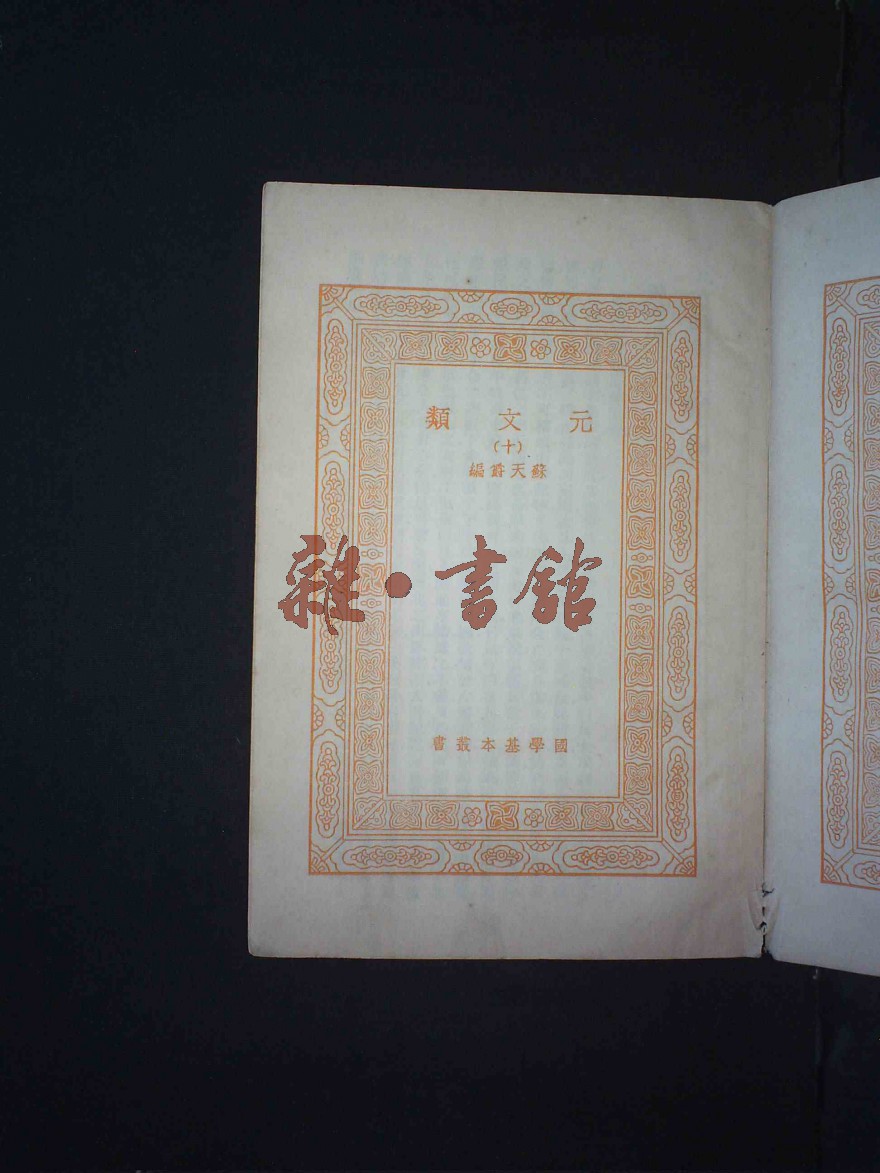 元文類
(十)
蘇天爵編
雜·書館
國學基本叢書